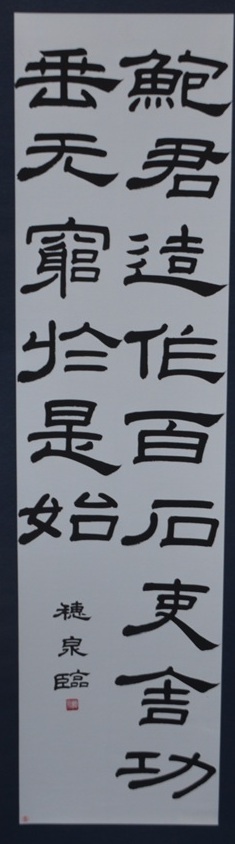 鮑君造作百石吏舎功
垂无窮於是始
穂泉臨